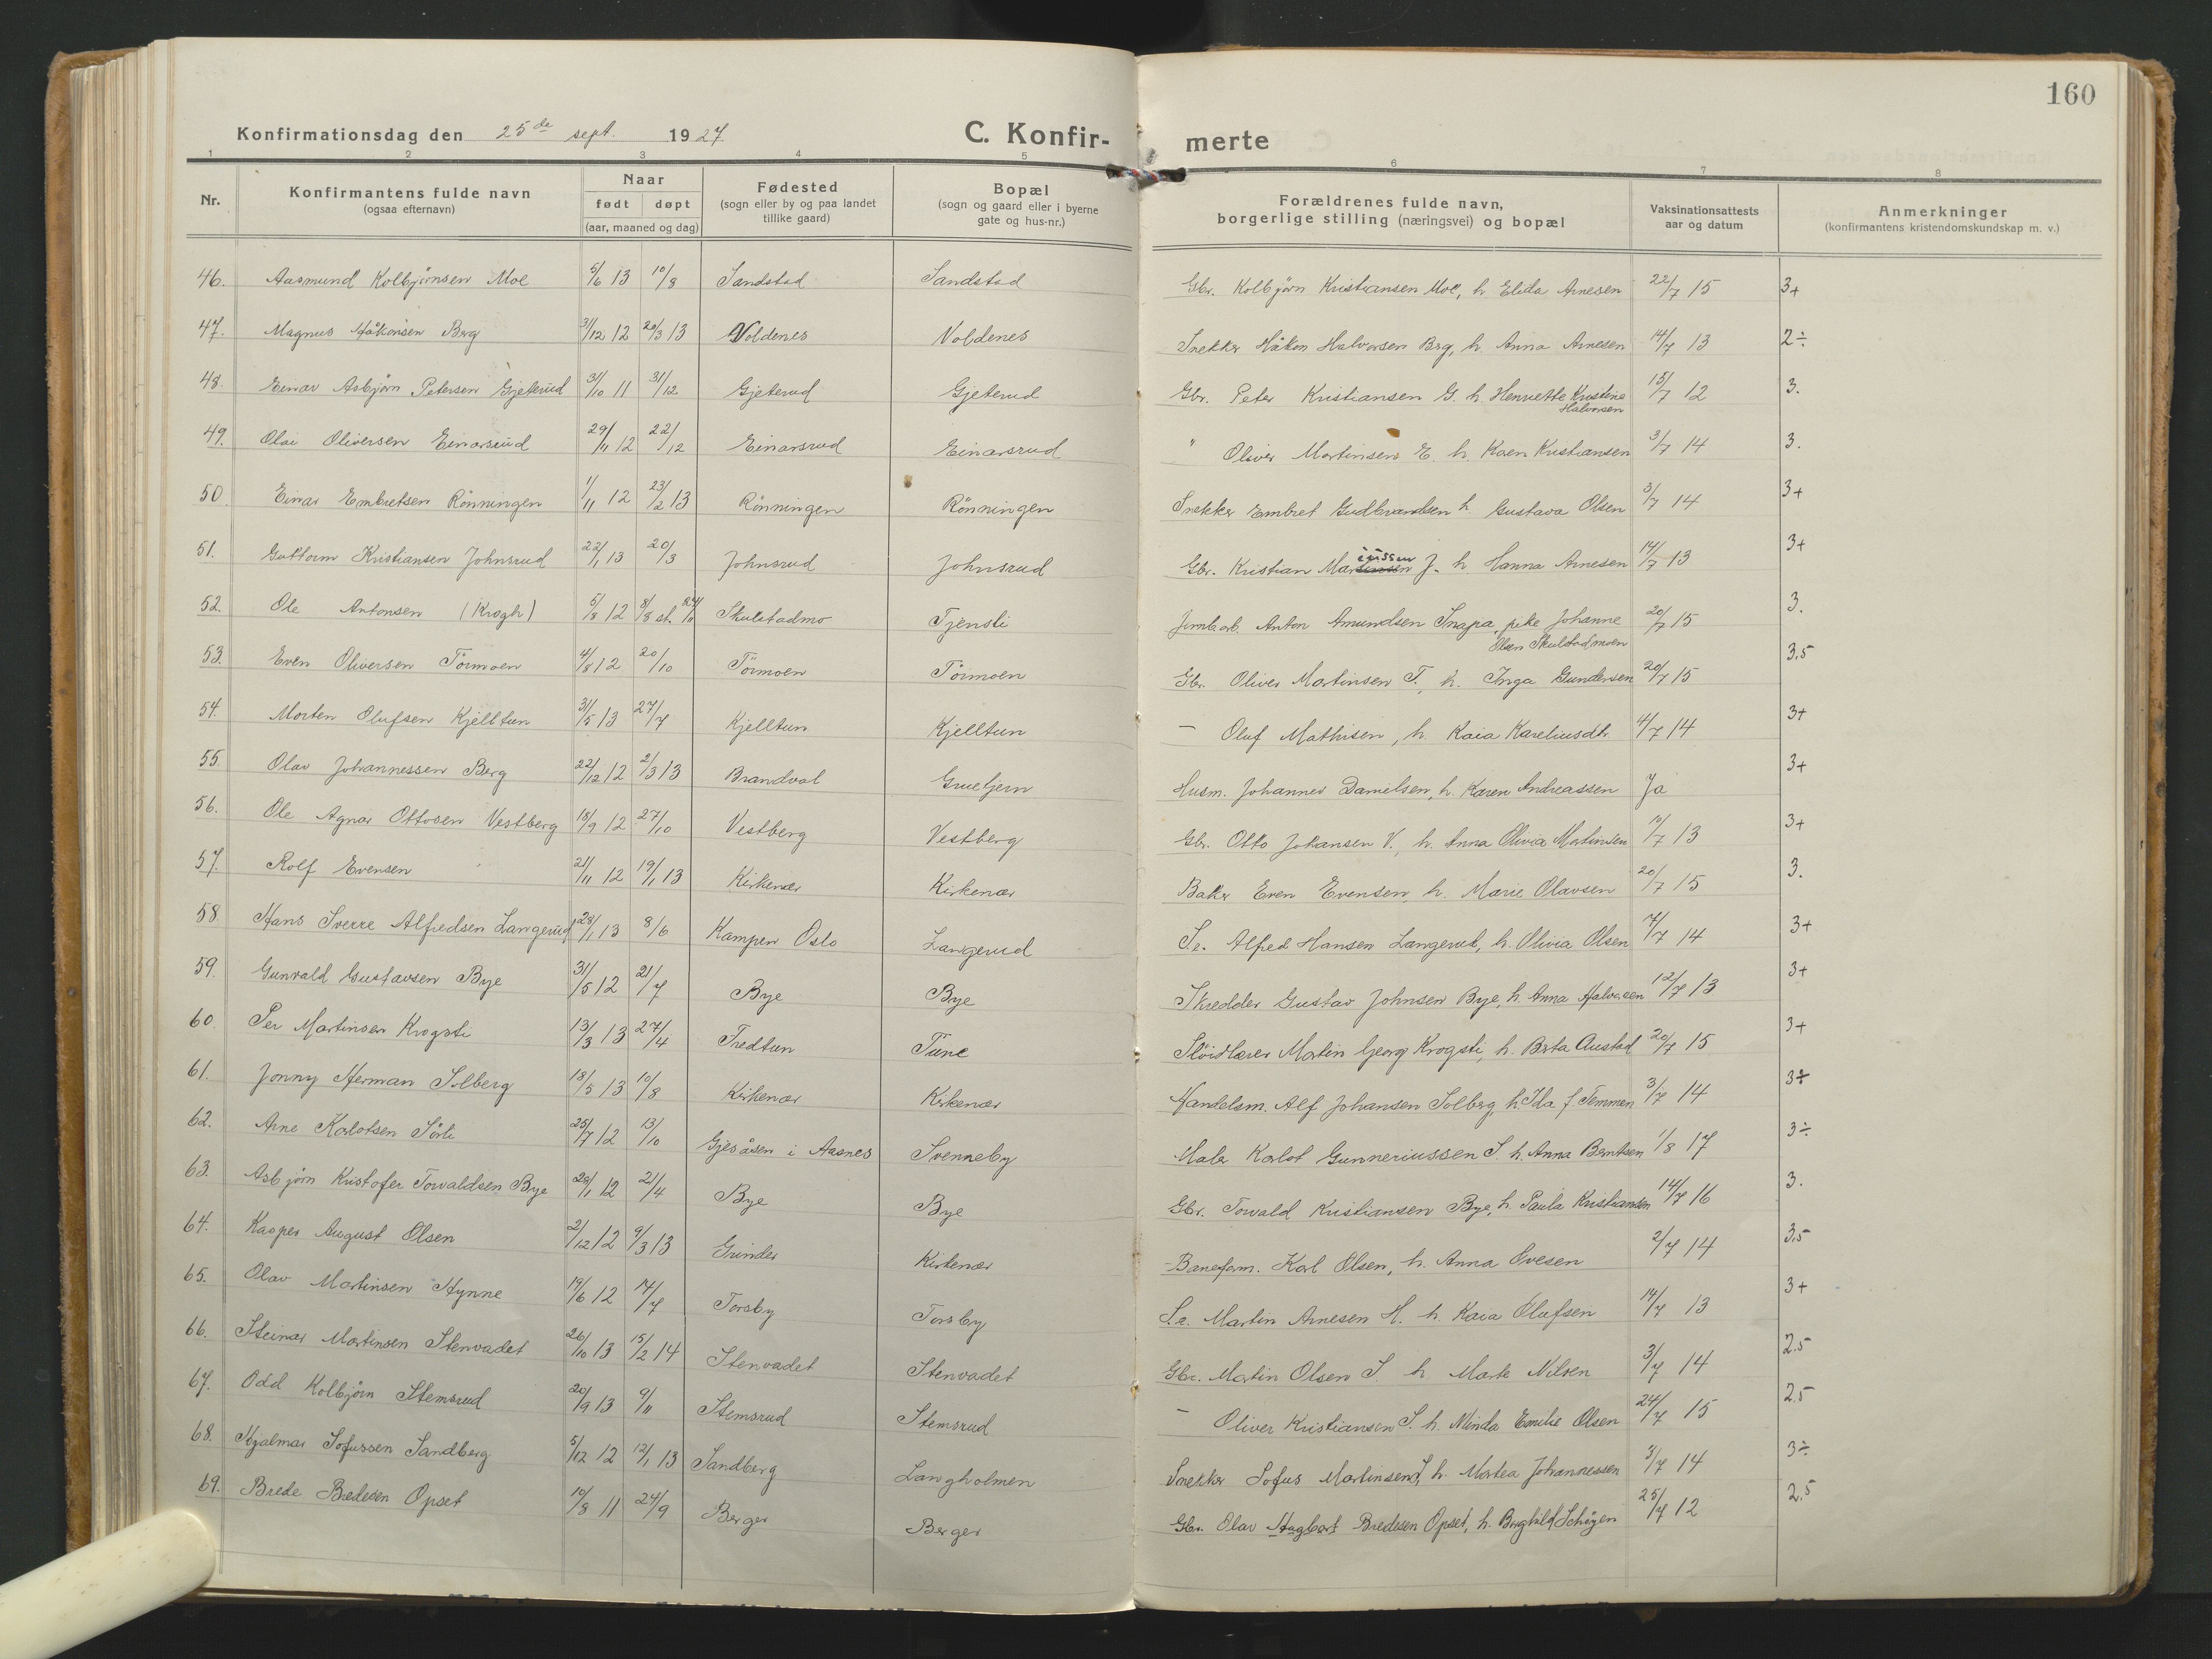 160
Konfirmationsdag den 25de sept. 1927 C. Konfir- merte
1 2 3 4 5 6 7 8
Nr. Konfirmantens fulde navn (ogsaa efternavn) Naar født døpt (aar, maaned og dag) Fødested (sogn eller by og paa landet tillike gaard) Bopæl (sogn og gaard eller i byerne gate og hus-nr.) Forældrenes fulde navn, borgerlige stilling (næringsvei) og bopæl Vaksinationsattests aar og datum Anmerkninger (konfirmantens kristendomskundskap m. v.)
46. Aasmund Kolbjørnsen Moe 5/6 13 10/8 Sandstad Sandstad Gbr. Kolbjørn Kristiansen Moe, h. Elida Arnesen 22/7 15 3+
47. Magnus Håkonsen Berg 31/12 12 20/3 13 Voldenes Voldenes Snekker Håkon Halvorsen Berg, h. Anna Arnesen 14/7 13 2÷
48. Einar Asbjørn Petersen Gjeterud 31/10 11 31/12 Gjeterud Gjeterud Gbr. Peter Kristiansen G. h. Henriette Kristine Halvorsen 15/7 12 3.
49. Olai Oliversen Einarsrud 29/11 12 22/12 Einarsrud Einarsrud " Oliver Martinsen E. h. Karen Kristiansen 3/7 14 3.
50 Einar Embretsen Rønningen 1/11 12 23/2 13 Rønningen Rønningen Snekker Embret Gudbrandsen h. Gustava Olsen 3/7 14 3+
51. Guttorm Kristiansen Johnsrud 22/1 13 20/3 Johnsrud Johnsrud Gbr. Kristian Mariussen J. h. Hanna Arnesen 14/7 13 3+
52. Ole Antonsen (Krogh) 5/8 12 8/8 st. Skulstadmo Tjensli Jernb.arb. Anton Amundsen Snapa, pike Johanne Olsen Skulstadmoen 20/7 15 3.
53. Even Oliversen Törmoen 4/8 12 20/10 Törmoen Törmoen Gbr. Oliver Martinsen T., h. Inga Gundersen 20/7 15 3,5
54. Morten Olufsen Kjelltun 31/5 13 27/7 Kjelltun Kjelltun — Oluf Mathisen, h. Kaia Kareliusdtr. 4/7 14 3+
55 Olav Johannessen Berg 22/12 12 2/3 13 Brandval Gruetjern Husm. Johannes Danielsen, h. Karen Andreassen Ja 3+
56. Ole Agnar Ottosen Vestberg 18/9 12 27/10 Vestberg Vestberg Gbr. Otto Johansen V., h. Anna Olivia Martinsen 10/7 13 3+
57. Rolf Evensen 21/11 12 19/1 13 Kirkenær Kirkenær Baker Even Evensen, h. Marie Olavsen 20/7 15 3.
58 Hans Sverre Alfredsen Langerud 23/1 13 8/6 Kampen Oslo Langerud Se. Alfred Hansen Langerud, h. Olivia Olsen 7/7 14 3+
59. Gunvald Gustavsen Bye 31/5 12 21/7 Bye Bye Skredder Gustav Johnsen Bye, h. Anna Halvorsen 12/7 13 3+
60. Per Martinsen Krogsti 13/3 13 27/4 Fredtun Tune Slöidlærer Martin Georg Krogsti, h. Berta Austad 20/7 15 3+
61. Jonny Herman Solberg 18/5 13 10/8 Kirkenær Kirkenær Handelsm. Alf Johansen Solberg, h. Ida f. Temmen 3/7 14 3+
62. Arne Karlotsen Sörli 25/7 12 13/10 Gjesåsen i Aasnes Svenneby Maler Karlot Gunneriussen S. h. Anna Berntsen 1/8 17 3÷
63. Asbjørn Kristofer Torvaldsen Bye 28/1 12 21/4 Bye Bye Gbr. Torvald Kristiansen Bye, h. Paula Kristiansen 14/7 16 3.
64. Kasper August Olsen 2/12 12 9/3 13 Grinder Kirkenær Baneform. Karl Olsen, h. Anna Ovesen 2/7 14 3,5
65. Olav Martinsen Hynne 19/6 12 14/7 Torsby Torsby S.e. Martin Arnesen H. h. Kaia Olufsen 14/7 13 3+
66. Steinar Martinsen Stenvadet 26/10 13 15/2 14 Stenvadet Stenvadet Gbr. Martin Olsen S. h. Marte Nilsen 3/7 14 2.5
67. Odd Kolbjørn Stemsrud 20/9 13 9/11 Stemsrud Stemsrud — Oliver Kristiansen S. h. Minda Emilie Olsen 24/7 15 2.5
68. Hjalmar Sofussen Sandberg 5/12 12 12/1 13 Sandberg Langholmen Snekker Sofus Martinsen S, h. Martea Johannessen 3/7 14 3÷
69. Brede Bredesen Opset 10/8 11 24/9 Berger Berger Gbr. Olav Hagbart Bredesen Opset, h. Borghild Schøyen 25/7 12 2.5